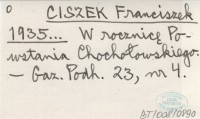 O
CISZEK Franciszek
1935... W rocznicę Po-
wstania Chochołowskiego.
— Gaz. Podh. 23, nr 4.